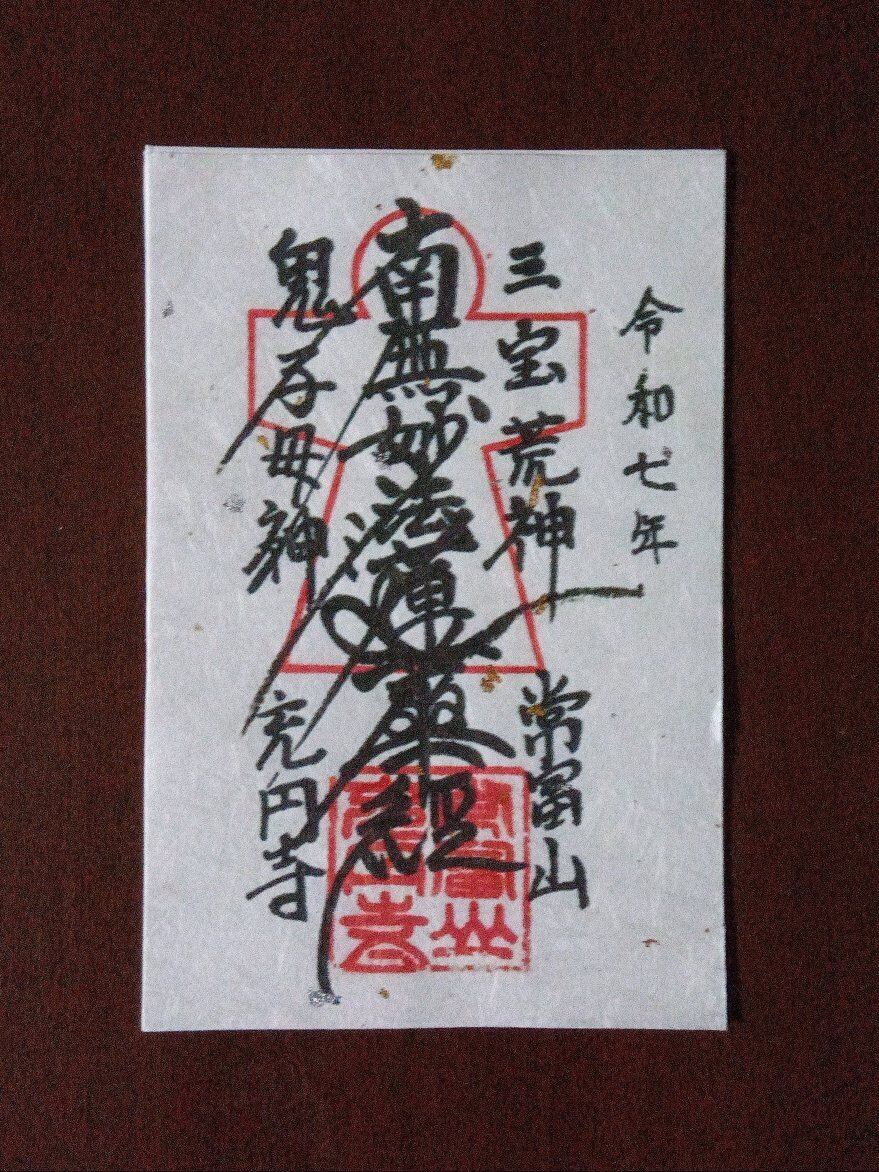 令和七年
三宝荒神
常富山
南無妙法蓮華経
鬼子母神
充円寺